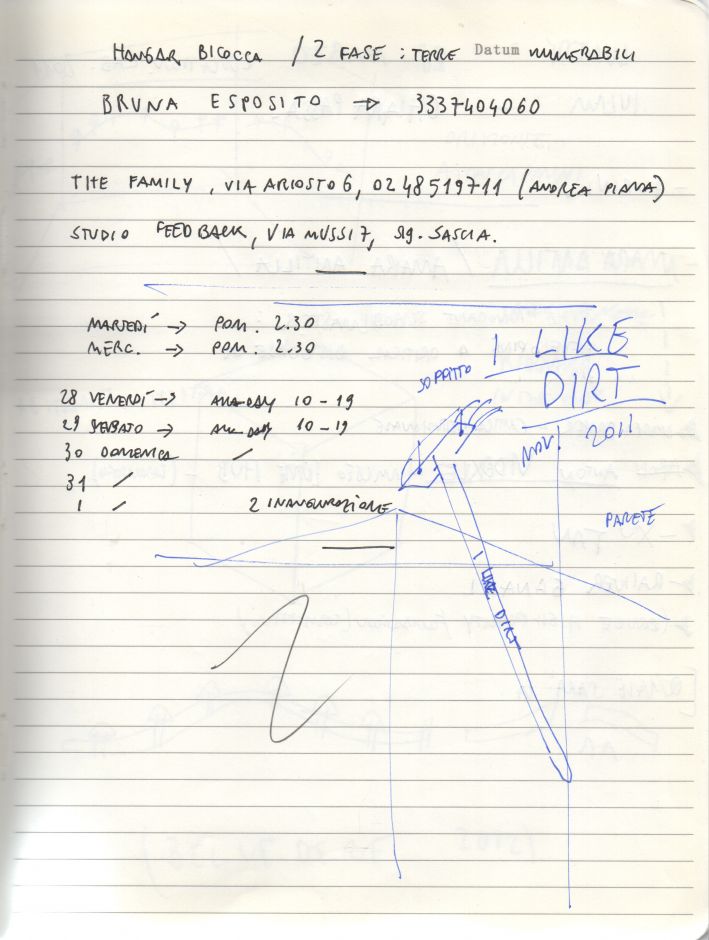 HANGAR BICOCCA / 2 FASE : TERRE Datum NUMERABILI
BRUNA ESPOSITO → 3337404060
THE FAMILY, VIA ARIOSTO 6, 02 48519711 (ANDREA PIANA)
STUDIO FEEDBACK, VIA MUSSI 7, SIG. SASCIA.
MARTEDÍ → POM. 2.30
MERC. → POM. 2.30
I LIKE
DIRT
SOFFITTO
NOV. 2011
28 VENERDÍ → 10-19
29 SABATO → 10-19
30 DOMENICA /
31 /
1 / 2 INAUGURAZIONE
PARETE
I LIKE DIRT